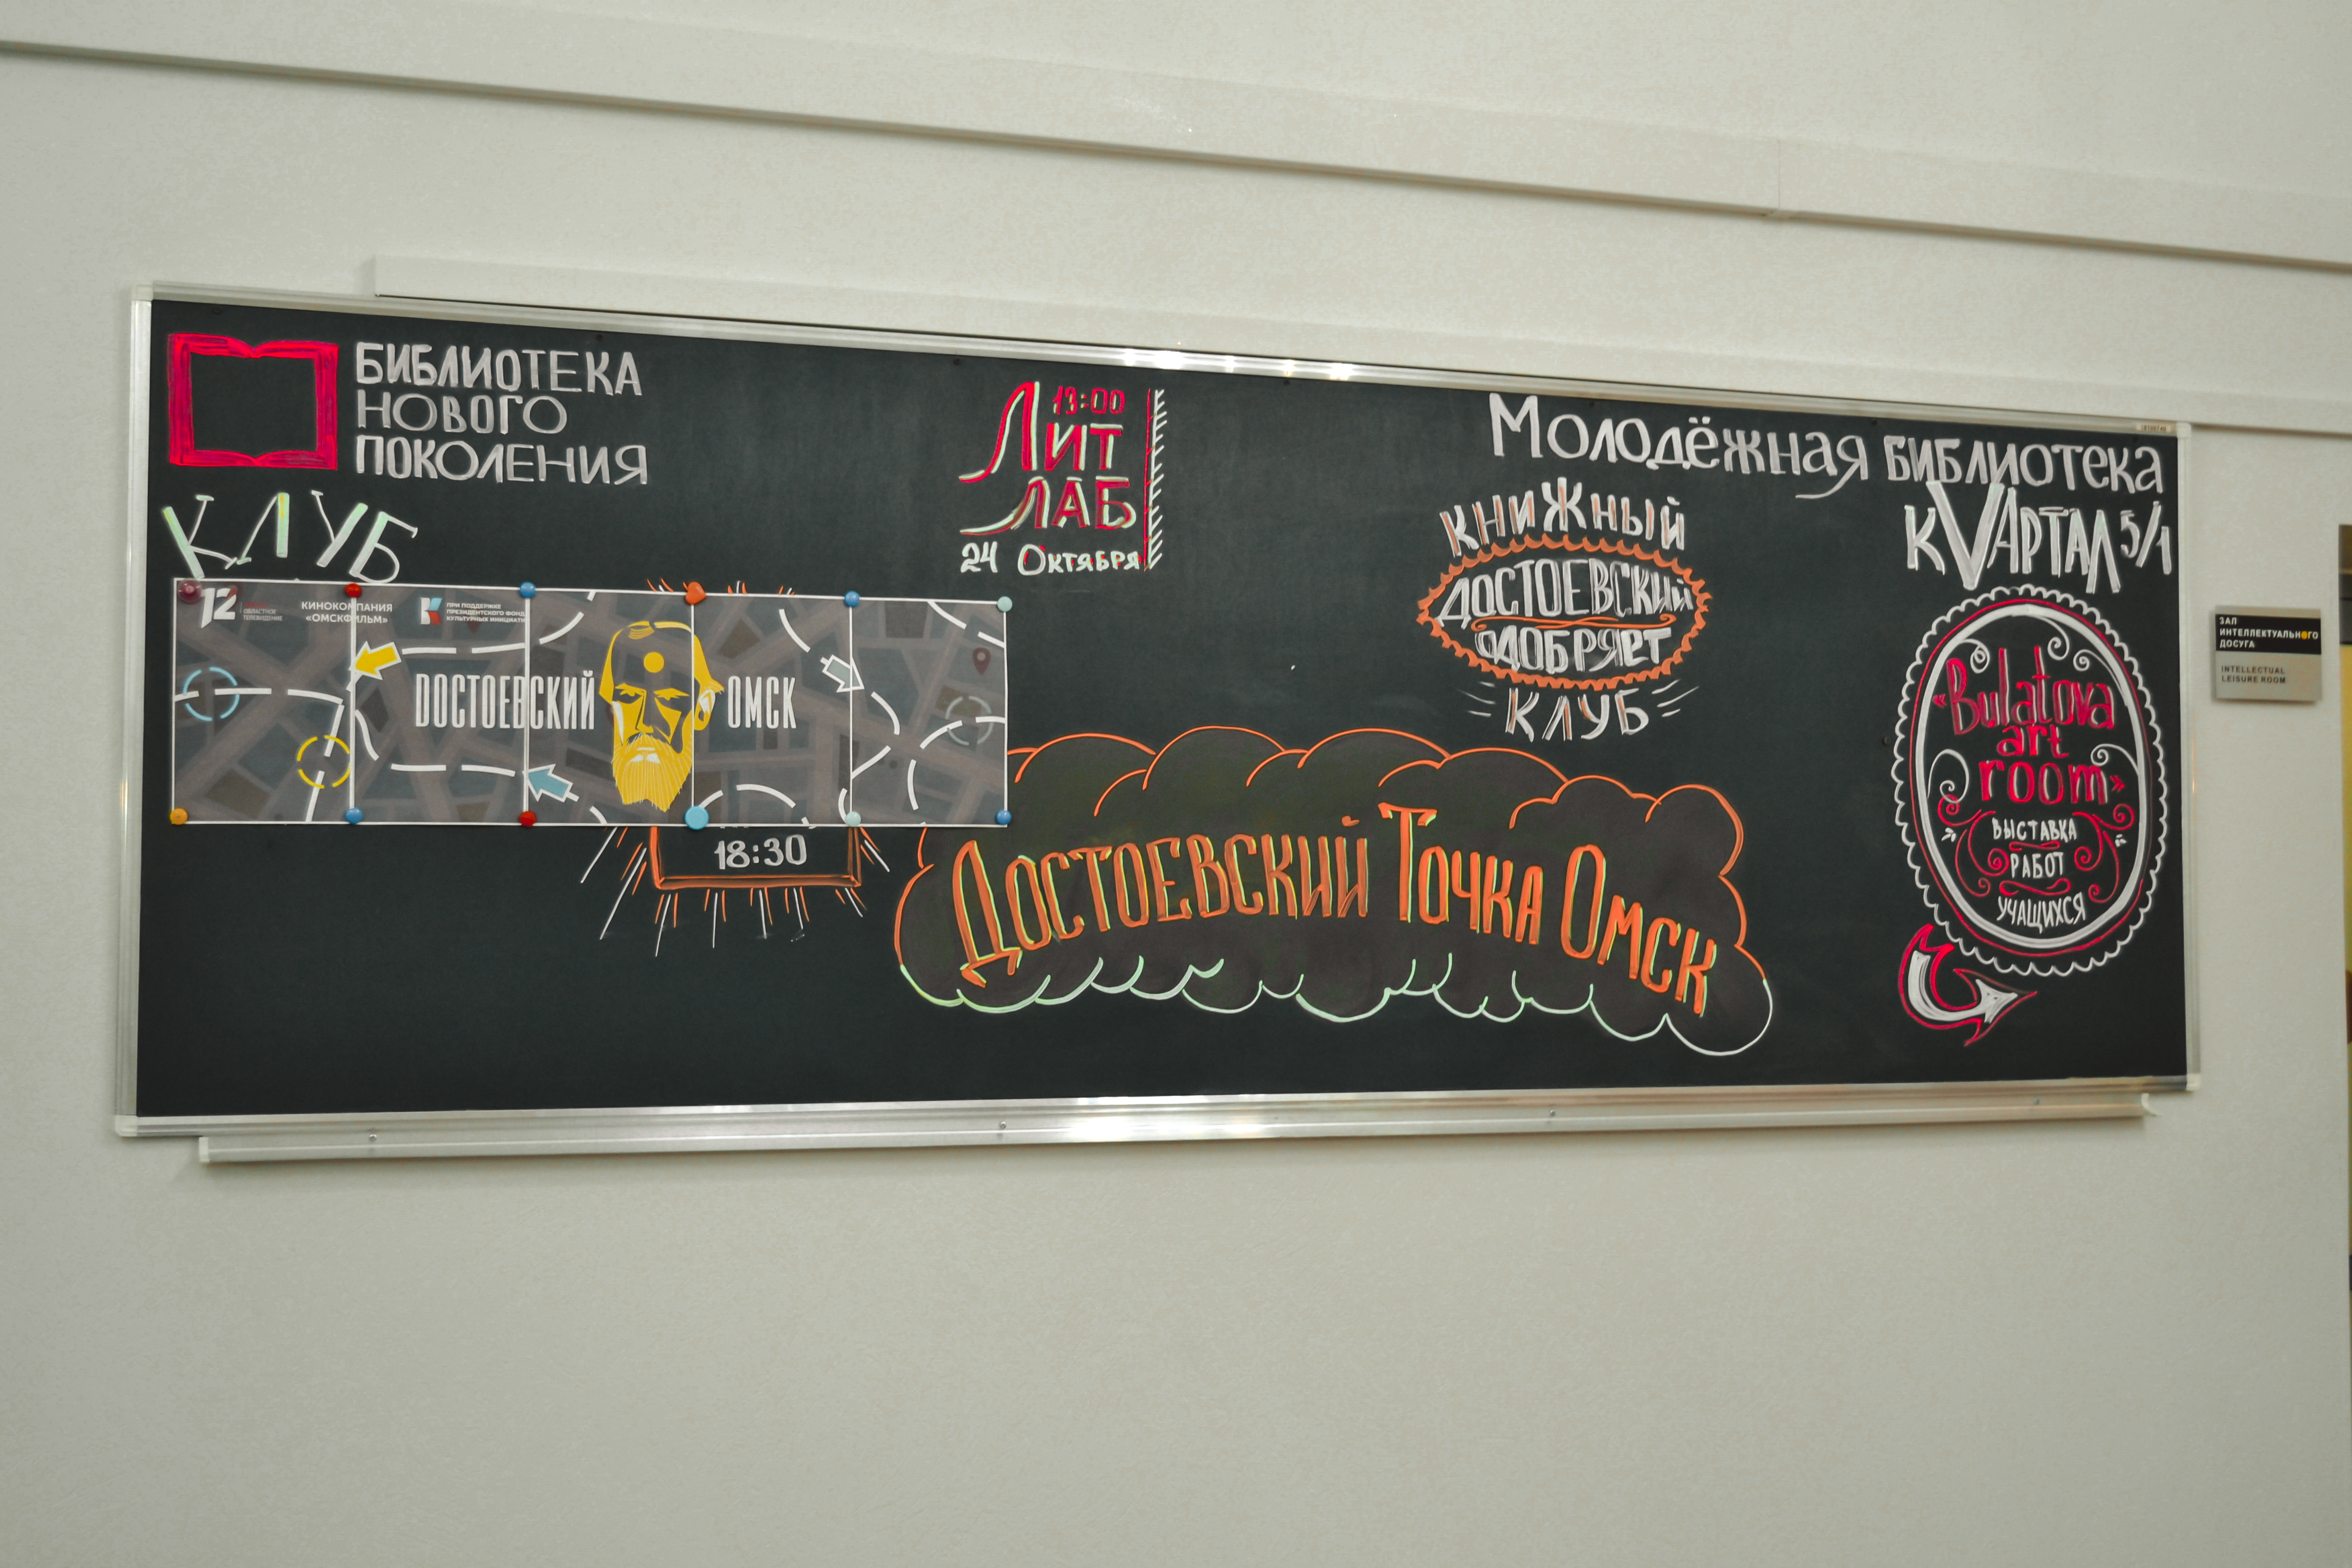 БИБЛИОТЕКА
НОВОГО
ПОКОЛЕНИЯ
КЛУБ
12
ОБЛАСТНОЕ
ТЕЛЕВИДЕНИЕ
КИНОКОМПАНИЯ
«ОМСКФИЛЬМ»
ПРИ ПОДДЕРЖКЕ
ПРЕЗИДЕНТСКОГО ФОНДА
КУЛЬТУРНЫХ
ДОСТОЕВСКИЙ ОМСК
18:30
13:00
ЛИТ
ЛАБ
24 Октября
Достоевский Точка Омск
Молодёжная библиотека
КVАРТАЛ 5/1
КНИЖНЫЙ
ДОСТОЕВСКИЙ
ОДОБРЯЕТ
КЛУБ
«Bulatova
art
room»
ВЫСТАВКА
РАБОТ
УЧАЩИХСЯ
ЗАЛ
ИНТЕЛЛЕКТУАЛЬНОГО
ДОСУГА
INTELLECTUAL
LEISURE ROOM